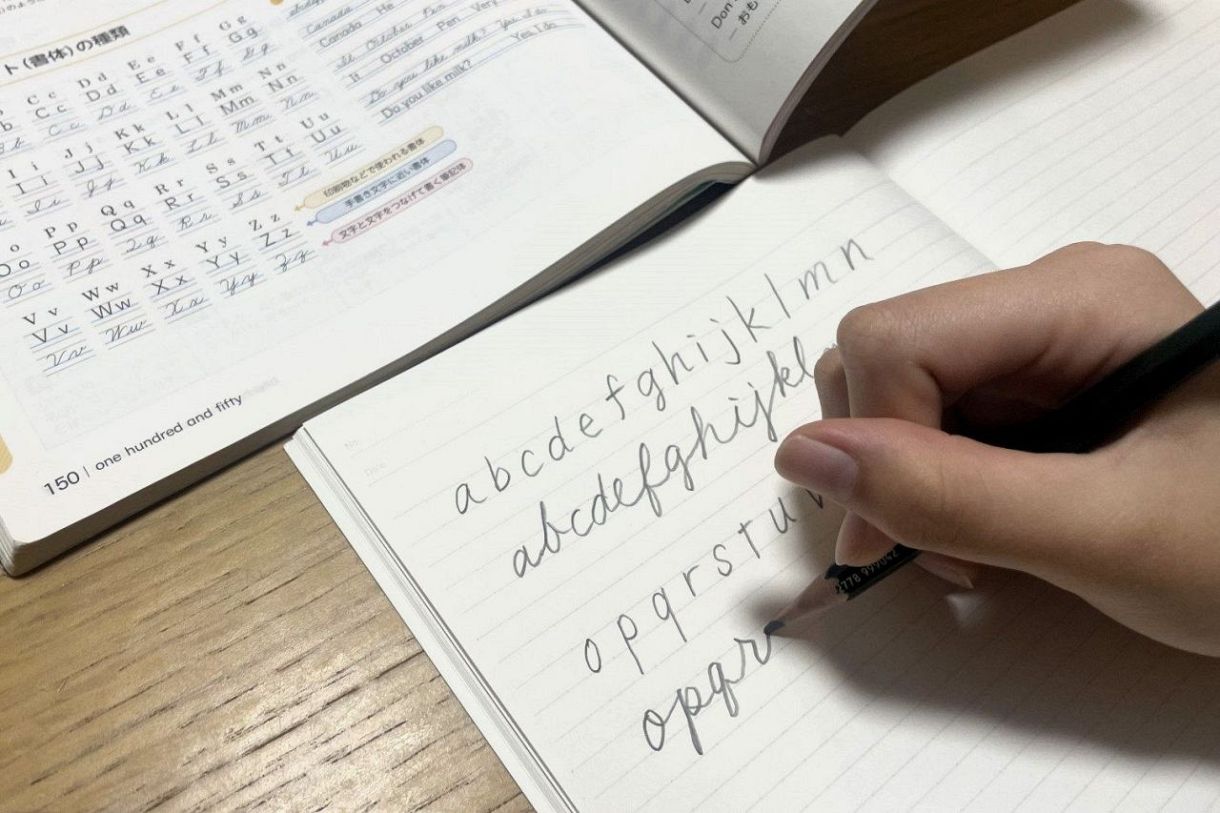 ト(書体)の種類
Ff Gg
Ff Gg
Ff Gg
Cc Dd Ee
Cc Dd Ee
Cc Dd Ee
Ll Mm Nn
Ll Mm Nn
Ll Mm Nn
Ii Jj Kk
Ii Jj Kk
Ii Jj Kk
Rr Ss Tt Uu
Rr Ss Tt Uu
Rr Ss Tt Uu
Pp Qq
Oo Pp Qq
Oo Pp Qq
Vv Ww Xx Yy Zz
Vv Ww Xx Yy Zz
Vv Ww Xx Yy Zz
Canada He
It October Pen Very
Do you like milk? Yes, I do
Do you like milk? Yes, I do
印刷物などで使われる書体
手書き文字に近い書体
文字と文字をつなげて書く筆記体
150 | one hundred and fifty
Don'
a b c d e f g h i j k l m n
abcdefghijkl
o p q r s t u
opqr